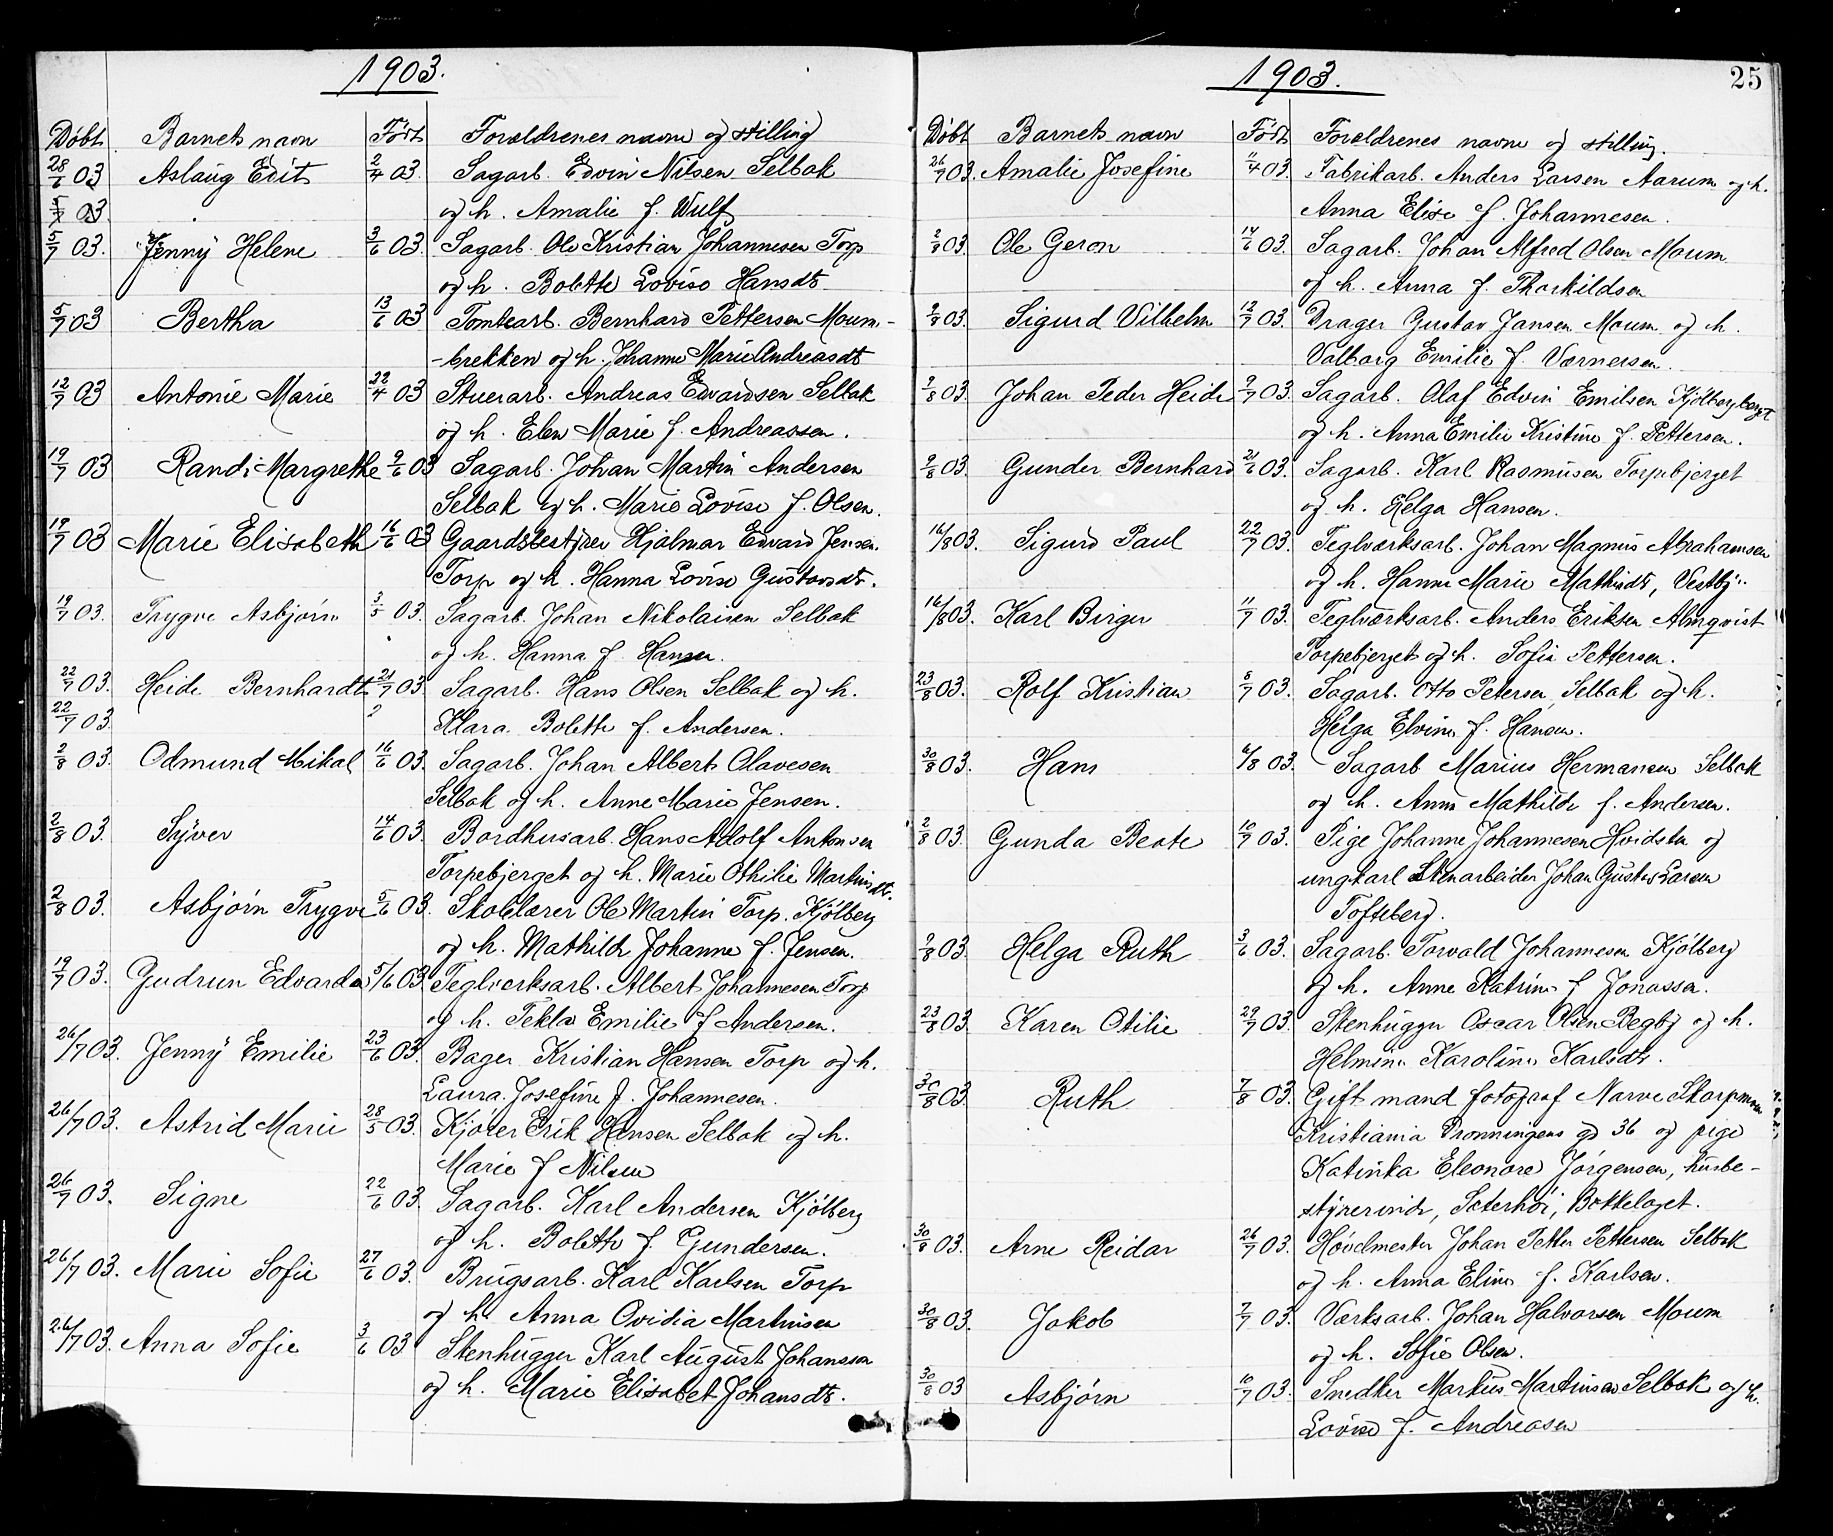 1903.
Döbt Barnets navn Født Forældrenes navne og stilling
28/6 03 Aslaug Edit 2/4 03 Sagarb. Edvin Nilsen Selbak
5/7 03 og h. Amalie f. Wulf
5/7 03. Jenny Helene 3/6 03. Sagarb. Ole Kristian Johannesen Torp
og h. Bolette Lovise Hansdt
5/7 03 Bertha 13/6 03 Tomtearb. Bernhard Pettersen Moum-
-brekken og h. Johanne Marie Andreasdt
12/7 03 Antonie Marie 22/4 03 Stuerarb. Andreas Edvardsen Selbak
og h. Elen Marie f. Andreassen.
19/7 03 Randi Margrethe 9/6 03 Sagarb. Johan Martin Andersen
Selbak og h. Marie Lovise f. Olsen.
19/7 03 Marie Elisabeth 16/6 03 Gaardsbestyrer Hjalmar Edvard Jensen.
Torp og h. Hanna Lovise Gustavsdt.
19/7 03. Trygve Asbjørn 3/5 03. Sagarb. Johan Nikolaisen Selbak
og h. Hanna f. Hansen.
22/7 03. Heide Bernhardt 21/7 03. Sagarb. Hans Olsen Selbak og h.
22/7 03. 2 Klara Bolette f. Andersen.
2/8 03. Odmund Mikal 16/6 03. Sagarb. Johan Albert Olavesen
Selbak og h. Anne Marie Jensen.
2/8 03. Syver 14/6 03. Bordhusarb. Hans Adolf Antonsen
Torpebjerget og h. Marie Othilie Martinsdt.
2/8 03. Asbjørn Trygve 5/6 03. Skolelærer Ole Martin Torp. Kjölberg
og h. Mathilde Johanne f. Jensen.
19/7 03. Gudrun Edvarda 5/6 03 Teglverksarb. Albert Johannesen Torp
og h. Tekla Emilie f Andersen.
26/7 03. Jenny Emilie 23/6 03. Bager Kristian Hansen Torp og h.
Laura Josefine f. Johannesen.
26/7 03. Astrid Marie 28/5 03. Kjører Erik Hansen Selbak og h.
Marie f Nilsen
26/7 03. Signe 22/6 03. Sagarb. Karl Andersen Kjölberg
og h. Bolette f. Gundersen.
26/7 03. Marie Sofie 27/6 03. Brugsarb. Karl Karlsen Torp
og h. Anna Ovidia Martinsen
26/7 03. Anna Sofie 3/6 03 Stenhugger Karl August Johansson
og h. Marie Elisabet Johansdt.
1903. 25
Döbt Barnets navn Født Forældrenes navne og stilling.
26/7 03. Amalie Josefine 11/4 03. Fabrikarb. Anders Larsen Aarum og h.
Anna Elise f. Johannesen.
2/8 03. Ole Geron 14/6 03. Sagarb. Johan Alfred Olsen Moum
og h. Anna f. Thorkildsen
9/8 03. Sigurd Vilhelm 12/7 03. Drager Gustav Jansen Moum og h.
Valborg Emilie f. Vernersen.
9/8 03. Johan Peder Heide 9/7 03. Sagarb. Olaf Edvin Emilsen Kjölbergberget
og h. Anna Emilie Kristine f. Pettersen.
9/8 03. Gunder Bernhard 21/6 03. Sagarb. Karl Rasmusen Torpebjerget
og h. Helga Hansen.
16/8 03. Sigurd Paul 22/7 03. Teglværksarb. Johan Magnus Abrahamsen
og h. Hanna Marie Mathisdt, Vestby.
16/8 03. Karl Birger 11/7 03. Teglværksarb. Anders Eriksen Almqvist
Torpebjerget og h. Sofie Pettersen.
23/8 03. Rolf Kristian 8/7 03. Sagarb. Otto Petersen, Selbak og h.
Helga Elvine f. Hansen.
30/8 03. Hans 6/8 03. Sagarb Marius Hermansen Selbak
og h. Anna Mathilde f. Andersen.
2/8 03. Gunda Beate 10/7 03. Pige Johanne Johannesen Hvidsten og
ungkarl Stenarbeider Johan Gustav Larsen
Tofteberg.
9/8 03. Helga Ruth 3/6 03. Sagarb. Torvald Johannesen Kjölberg
og h. Anne Katrine f Jonassen.
23/8 03. Karen Otilie 29/7 03. Stenhugger Oscar Olsen Begby og h.
Helmine Karoline Karlsdt.
30/8 03. Ruth 7/8 03. Gift mand fotograf Narve Skarpmoen
Kristiania Dronningens gd 36 og pige
Katinka Eleonore Jørgensen, husbe-
styrerinde, Sæterhøi, Bottkelaget.
30/8 03. Arne Reidar 26/7 03. Høvelmester Johan Petter Pettersen Selbak
og h. Anna Eline f. Karlsen.
30/8 03. Jakob 7/7 03. Værksarb. Johan Halvorsen Moum
og h. Sofie Olsen.
30/8 03 Asbjørn 10/7 03. Snedker Markus Martinsen Selbak og h.
Lovise f. Andreasen